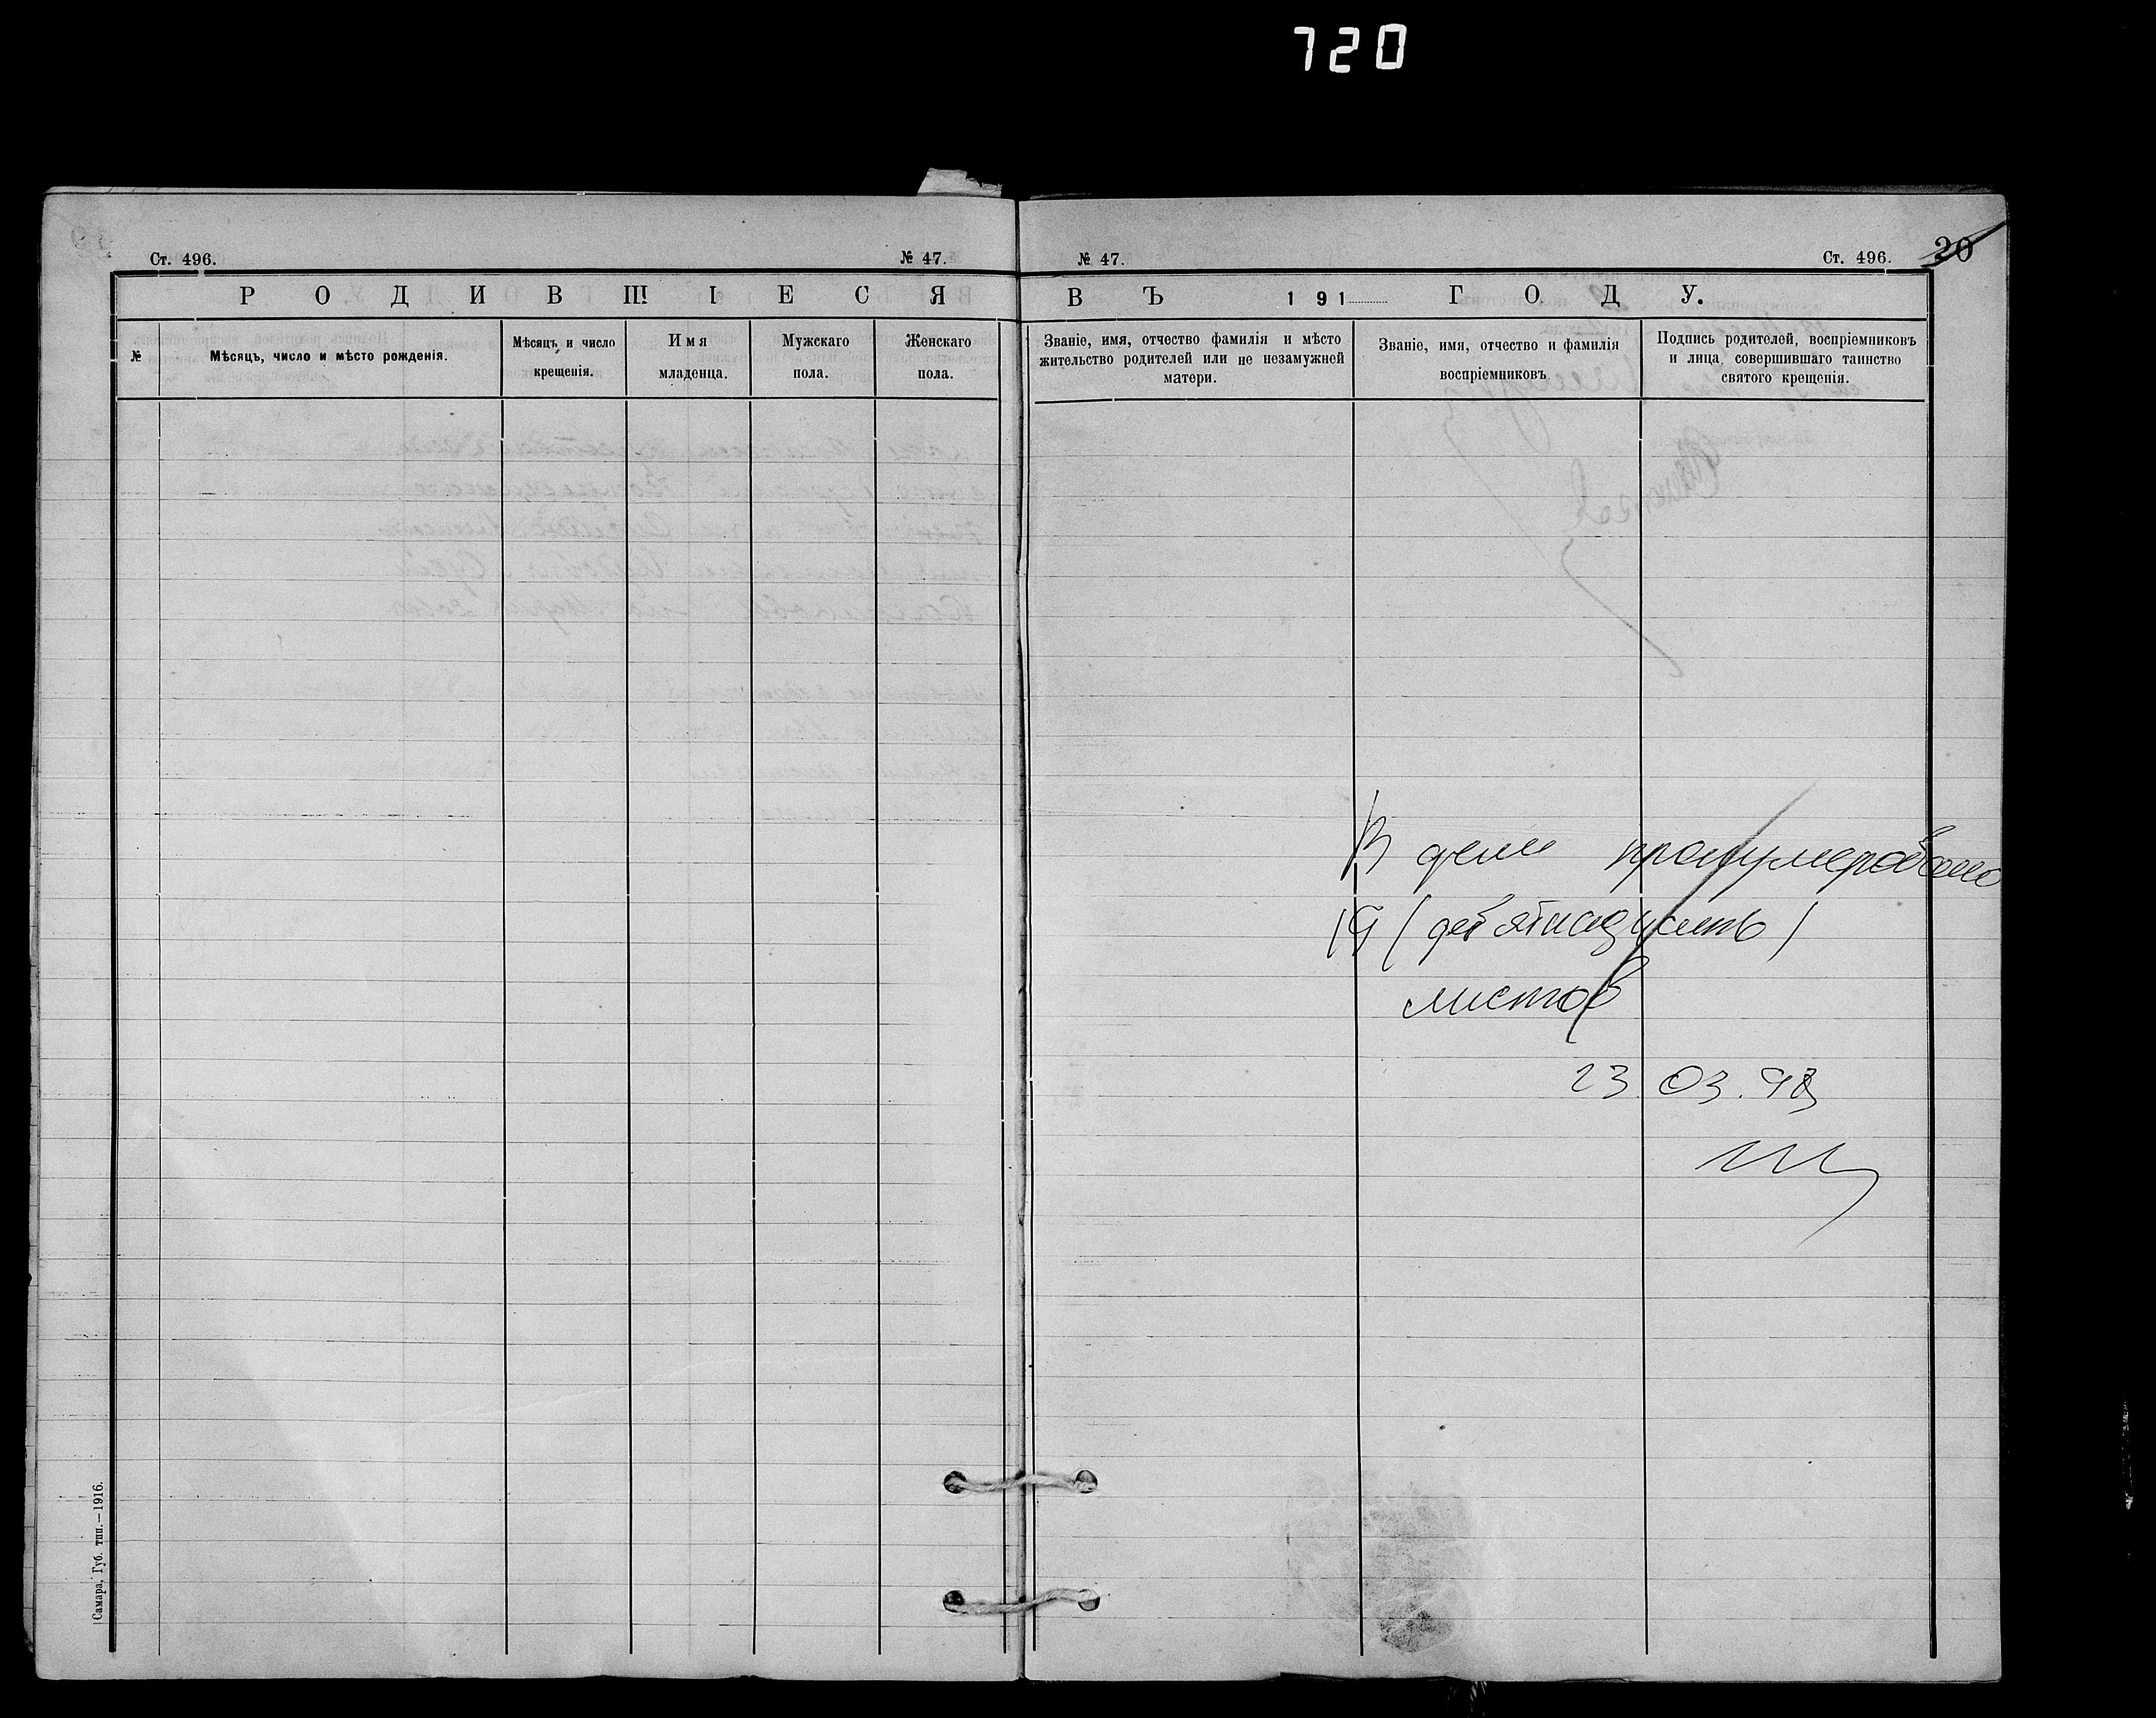 720
Ст. 496.
№ 47.
РОДИВШІЕСЯ
№
Мѣсяцъ, число и мѣсто рожденія.
Мѣсяцъ и число
крещенія.
Имя
младенца.
Мужскаго
пола.
Женскаго
пола.
Самара, Губ. тип.—1916.
№ 47.
Ст. 496.
20
ВЪ 191 ГОДУ.
Званіе, имя, отчество фамилія и мѣсто
жительство родителей или не незамужней
матери.
Званіе, имя, отчество и фамилія
воспріемниковъ
Подпись родителей, воспріемниковъ
и лица, совершившаго таинство
святого крещенія.
В деле пронумеровано
19 (девятнадцать)
листов
23.03.98